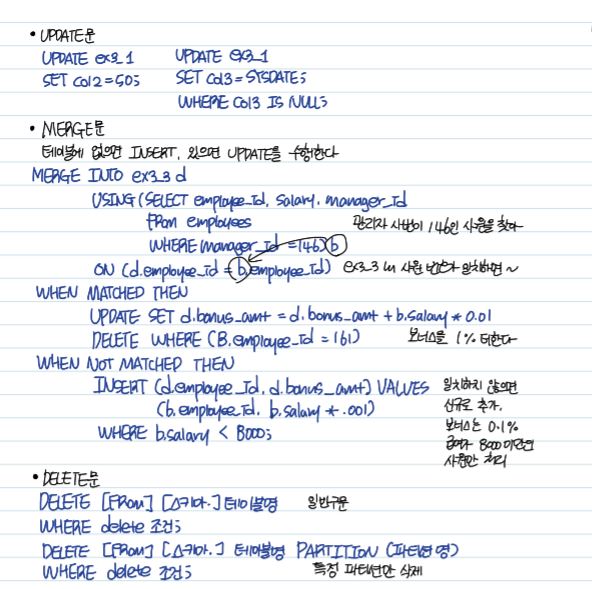 • UPDATE문
UPDATE ex3_1
SET Col2=50;
UPDATE ex3_1
SET Col3=SYSDATE;
WHERE Col3 IS NULL;
• MERGE문
테이블에 없으면 INSERT, 있으면 UPDATE를 수행한다
MERGE INTO ex3_3 d
USING(SELECT employee_Id, salary, manager_Id
From employees
관리자 사번이 146인 사원을 찾아
WHERE manager_Id =146) b
ON (d.employee_Id = b.employee_Id)
ex3_3 내 사원 번호가 일치하면 ~
WHEN MATCHED THEN
UPDATE SET d.bonus_amt = d.bonus_amt + b.salary * 0.01
DELETE WHERE (B.employee_Id = 161)
보너스를 1% 더한다
WHEN NOT MATCHED THEN
INSERT (d.employee_Id, d.bonus_amt) VALUES
(b.employee_Id, b.salary * .001)
WHERE b.salary < 8000;
일치하지 않으면
신규로 추가.
보너스는 0.1%
급여가 8000미만인
사원만 처리
• DELETE문
DELETE [From] [스키마.] 테이블명
일반구문
WHERE delete 조건;
DELETE [From] [스키마.] 테이블명 PARTITION (파티션명)
WHERE delete 조건;
특정 파티션만 삭제